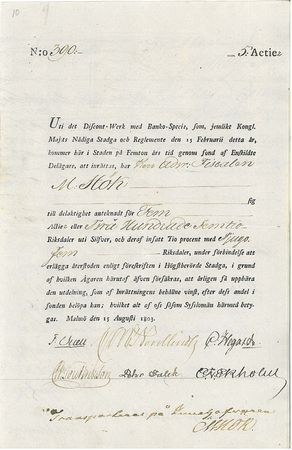 10
N:o 300.
5. Actier
Uti det Discont-Werk med Banko-Specie, som, jemlikt Kongl.
Majts Nådiga Stadga och Reglemente den 15 Februarii detta år,
kommer här i Staden på Femton års tid genom fond af Enskildte
Delägare, att inrättas, har Herr Adv. Fiscalen
M. Hök
sig
till delaktighet anteknadt för Fem
Actier eller Två Hundrade Femtio
Riksdaler uti Silfver, och deraf insatt Tio procent med Tjugo
fem Riksdaler, under förbindelse att
erlägga återstoden enligt föreskriften i Högstberörde Stadga, i grund
af hvilken Ägaren härutaf äfven försäkras, att årligen få uppbära
den utdelning, som af Inrättningens behållne vinst, efter dess andel i
fonden belöpa kan; hvilket alt af oss såsom Sysslomän härmed betygas.
Malmö den 15 Augusti 1803.